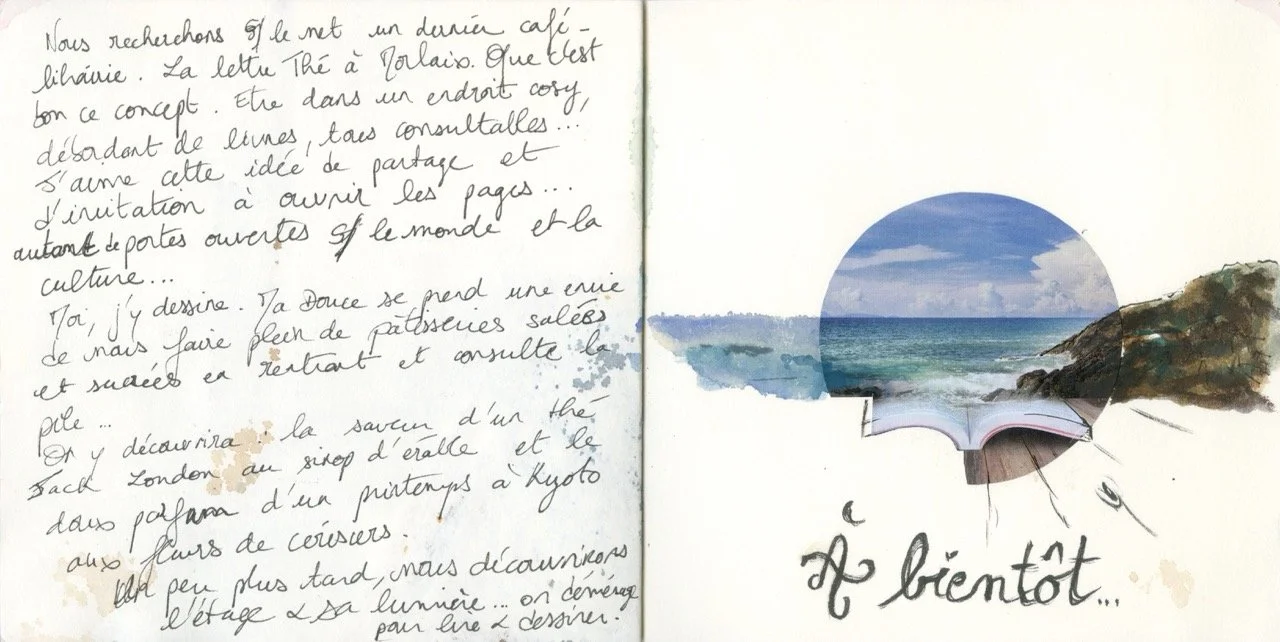 Nous recherchons s/ le net un dernier café-
librairie. La lettre Thé à Morlaix. Que c'est
bon ce concept. Etre dans un endroit cosy,
débordant de livres, tous consultables...
J'aime cette idée de partage et
d'invitation à ouvrir les pages...
autant de portes ouvertes s/ le monde et la
culture...
Moi, j'y dessine. Ma Douce se prend une envie
de nous faire plein de pâtisseries salées
et sucrées en rentrant et consulte la
pile...
On y découvrira : la saveur d'un thé
Jack London au sirop d'érable et le
doux parfum d'un printemps à Kyoto
aux fleurs de cerisiers.
Un peu plus tard, nous découvrirons
l'étage & sa lumière... on déménage
pour lire & dessiner.
À bientôt...